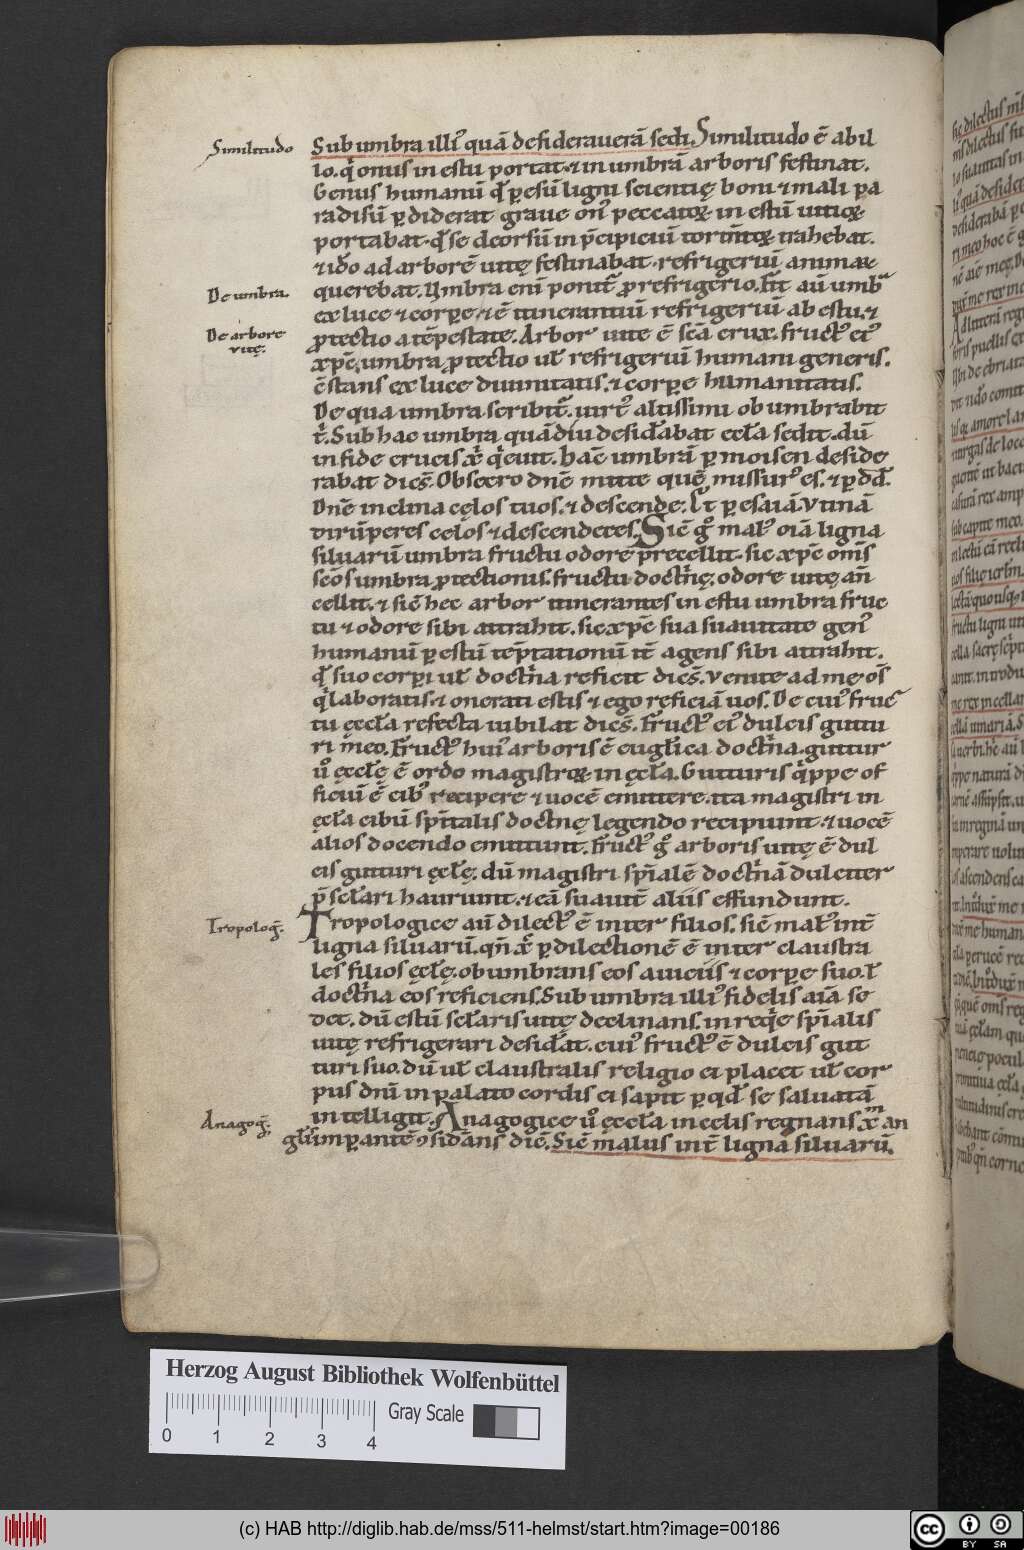 Similitudo
Sub umbra illiꝰ quā desiderauerā sedi. Similitudo ē ab il
lo. q̇ onus in estu portat. ⁊ in umbrā arboris festinat.
Genus humanū qđ ꝑ esū ligni scientię boni ⁊ mali pa
radisū ꝑdiderat graue onꝰ peccatoꝝ in estū uitioꝝ
portabat. qđ se deorsū in p̄cipiciū torm̄toꝝ trahebat.
⁊ ido ad arborē uitę festinabat. refrigeriū animae
De umbra.
querebat. Umbra eni ponit᷑ ꝓ refrigerio. Fit aū umbra
ex luce ⁊ corpore. ⁊ ē itinerantiū refrigeriū ab estu. ⁊
De arbore
vitę.
ꝓtectio a tēpestate. Arbor uite ē sca crux. fructꝰ eiꝰ
xp̄c. umbra ꝓtectio ul refrigeriū humani generis.
ↄstans ex luce diuinitatis. ⁊ corpore humanitatis.
De qua umbra scribit᷑. uirtꝰ altissimi obumbrabit
t̄. Sub hac umbra quādiu desidabat eccla sedit. dū
in fide crucis xp̄i q̇euit. Hāc umbrā ꝑ moisen deside
rabat dicēs. Obsecro dn̄e mitte quē missurꝰ es. ⁊ ꝑ dđ.
Dn̄e inclina cęlos tuos. ⁊ descende. Et ꝑ esaiā. Vtinā
dirūperes celos ⁊ descenderes. Sic g malꝰ oīa ligna
siluarū umbra fructu odore p̄cellit. sic xp̄c om̄s
scōs umbra ꝓtectionis. fructu doctrinę. odore uitę an
cellit. ⁊ sic hec arbor itinerantes in estu umbra fruc
tu ⁊ odore sibi attrahit. sic xp̄c sua suauitate genꝰ
humanū ꝑ estū tēptationū itē agens sibi attrahit.
qđ suo corpori ul doctrina reficit dicēs. Venite ad me oēs
q̇ laboratis. ⁊ onerati estis ⁊ ego reficiā uos. De cuiꝰ fruc
tu ęccla refecta iubilat dicēs. Fructꝰ eiꝰ dulcis guttu
ri meo. Fructꝰ huiꝰ arboris ē euglica doctrina. guttur
u̇ ęcclę ē ordo magistroꝝ in ęccla. Gutturis q̇ppe of
ficiū ē cibū recipere ⁊ uocē emittere. ita magistri in
ęccla cibū spitalis doctrinę legendo recipiunt. ⁊ uocē
alios docendo emittunt. Fructꝰ g arboris uitę ē dul
cis gutturi ęcclę. dū magistri spiualē doctrinā dulciter
p̄sclari hauriunt. ⁊ eā suauit᷑ aliis effundunt.
Tropolog.
Tropologice aū dilectꝰ ē inter filios. sic malꝰ int̄
ligna siluarū. qn xp̄c ꝑ dilectionē ē inter claustra
les filios ęcclę. obumbrans eos a uiciis ⁊ corpore suo. ul
doctrina eos reficiens. Sub umbra illiꝰ fidelis aīa se
det. dū estū sclaris uitę declinans. in requie spiualis
uitę refrigerari desidat. cuiꝰ fructꝰ ē dulcis gut
turi suo. dū ul claustralis religio ei placet ul cor
pus dni in palato cordis ei sapit ꝑ qđ se saluatā
Anagog.
intelligit. Anagogice u̇ ęccla in celis regnans. xp̄m an
glis imꝑantē ↄsidans dic̄. Sic malus int̄ ligna siluarū.
Herzog August Bibliothek Wolfenbüttel
0 1 2 3 4
Gray Scale
(c) HAB http://diglib.hab.de/mss/511-helmst/start.htm?image=00186
cc BY SA